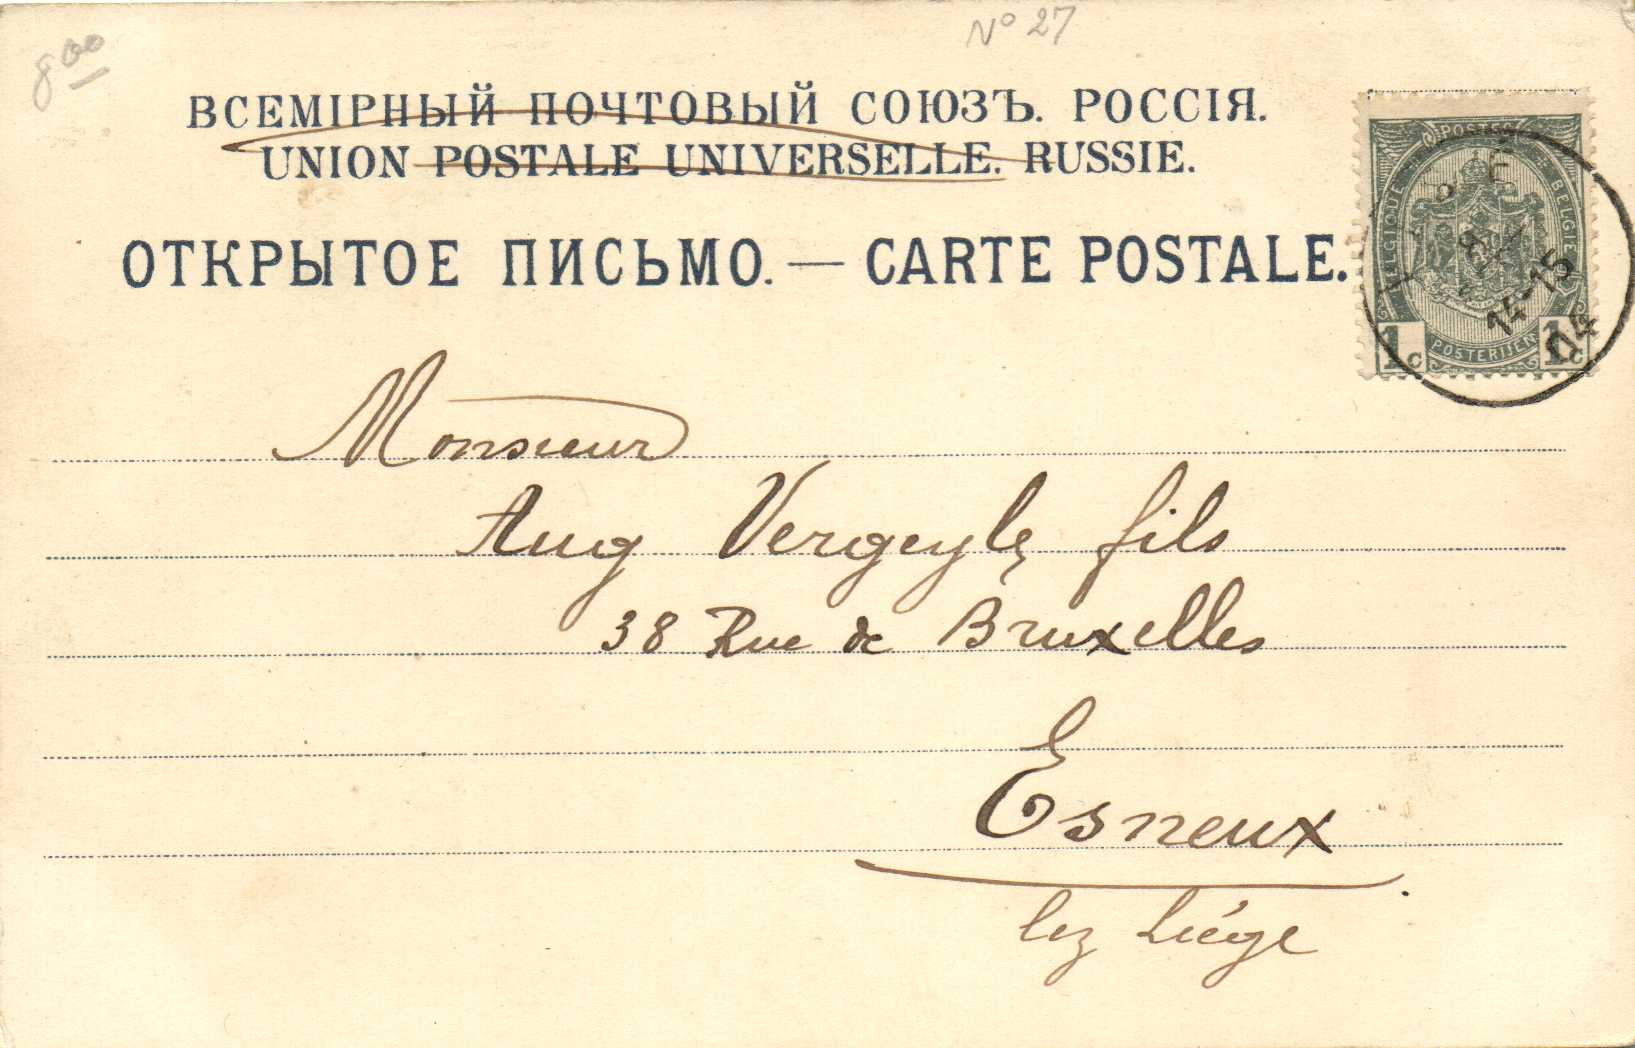 800
Nº 27
ВСЕМІРНЫЙ ПОЧТОВЫЙ СОЮЗЪ. РОССІЯ.
UNION POSTALE UNIVERSELLE. RUSSIE.
ОТКРЫТОЕ ПИСЬМО. — CARTE POSTALE.
POSTES
BELGIQUE
BELGIË
1c
POSTERIJEN
1c
14-15
04
Monsieur
Aug Vergeylé fils
38 Rue de Bruxelles
Esneux
lez Liége